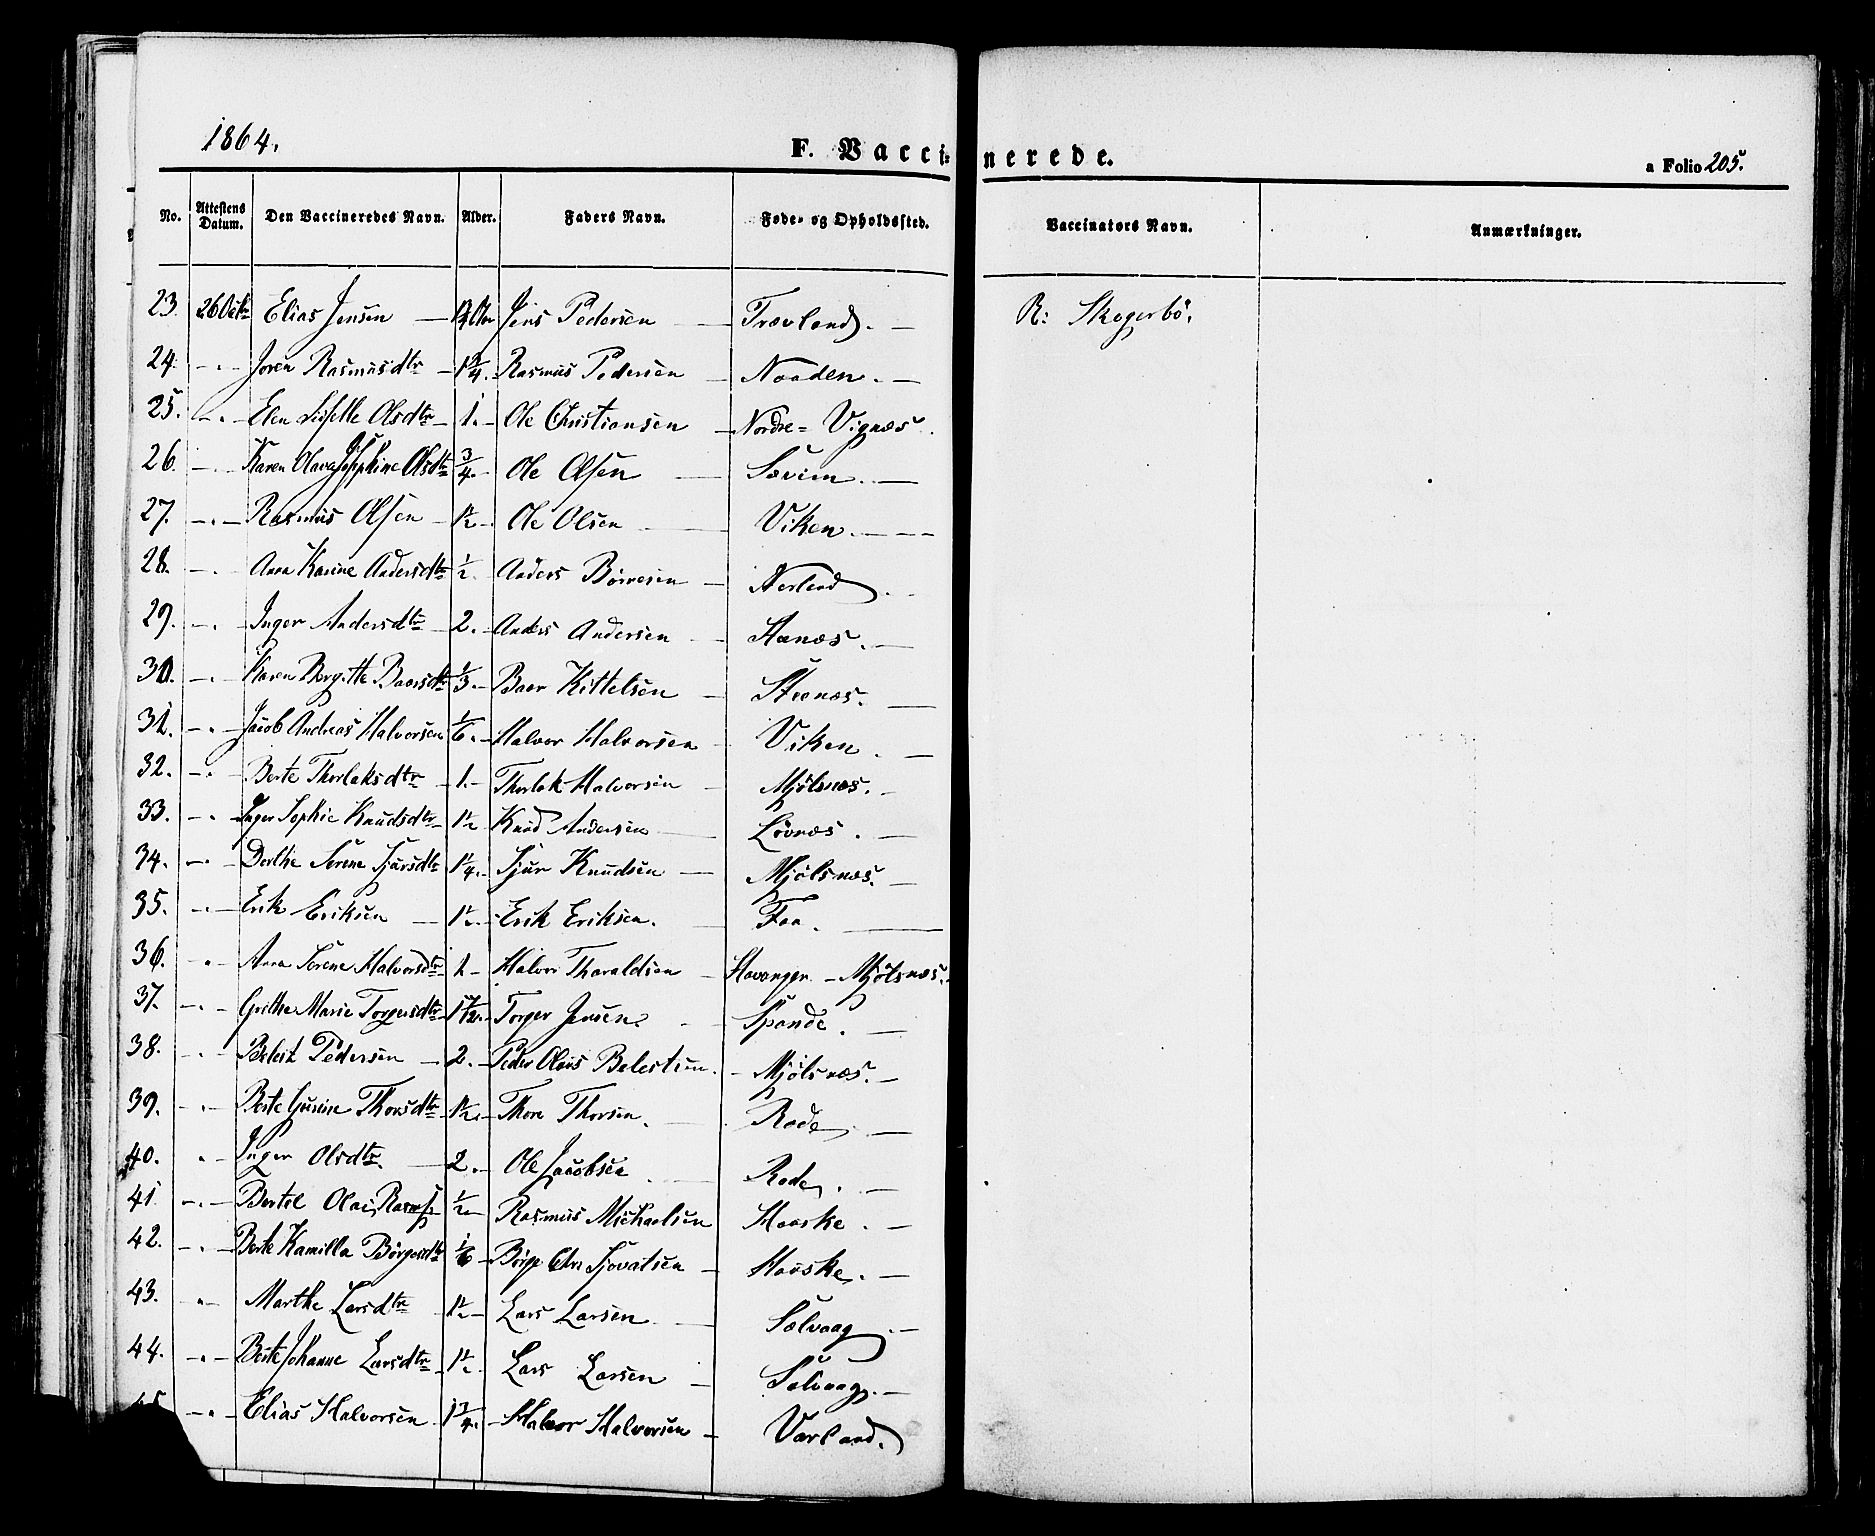 1864.
F. Vaccinerede.
a Folio 205.
No. Attestens Datum. Den Vaccineredes Navn. Alder. Faders Navn. Føde- og Opholdssted. Vaccinators Navn. Anmærkninger.
23. 26 Octr Elias Jensen — Jens Pedersen — Trævland. — R: Skogerbö.
24. - " - Joren Rasmusdtr — 1 3/4. - Rasmus Pedersen — Naaden. —
25. - " - Elen Lisette Olsdtr — 1. - Ole Christiansen — Nordre = Vignæs.
26. - " - Karen Olava Josephine Olsdtr 3/4. - Ole Olsen — Sævim. —
27. - " - Rasmus Olsen - 1 1/2 - Ole Olsen — Viken. — — —
28. - " - Anna Karine Andersdtr 1/2. Anders Börresen — Nerland.
29. - " - Inger Andersdtr - 2. - Anders Andersen — Stenæs. —
30. - " - Karen Bergitte Baarsdtr 1/3. - Baar Kittelsen — Steenæs. —
31. - " - Jacob Andreas Halvorsen 1/6. - Halvor Halvorsen - Viken. —
32. - " - Berte Thorlaksdtr - 1. - Thorlak Halvorsen - Mjölsnæs. -
33. - " - Inger Sophie Knudsdtr 1 1/2 Knud Andersen — Lövnæs. —
34. - " - Dorthe Serene Sjursdtr 1 1/4. - Sjur Knudsen — Mjölsnæs. —
35. - " - Erik Eriksen — 1 1/2. - Erik Eriksen. - Faa. —
36. " - Anna Serene Halvorsdtr 1 - Halvor Tharaldsen — Stavanger — Mjölsnæs.
37. - " - Grethe Marie Torgersdtr Torger Jensen. - Spande. —
38. - " - Belest Pedersen — 2. - Peder Olaus Belestsen. - Mjölsnæs. —
39. - " - Berte Gurine Thorsdtr 1 1/2. - Thore Thorsen. - Rode. —
40. " - Inger Olsdtr. — 2. - Ole Jacobsen — Rode. —
41. - " - Bertel Olai Rasms. 1/2 - Rasmus Michaelsen Hauske. —
42. - " - Berte Kamilla Börgesdtr 1/6 - Börge Chr Sjovatsen — Hauske. —
43. " - Marthe Larsdtr 1 1/2 - Lars Larsen — Salvaag. —
44. - " - Berte Johanne Larsdtr 1 1/2. Lars Larsen — Salvaag. —
45. - " - Elias Halvorsen 1 3/4. - Halvor Halvorsen — Varland.